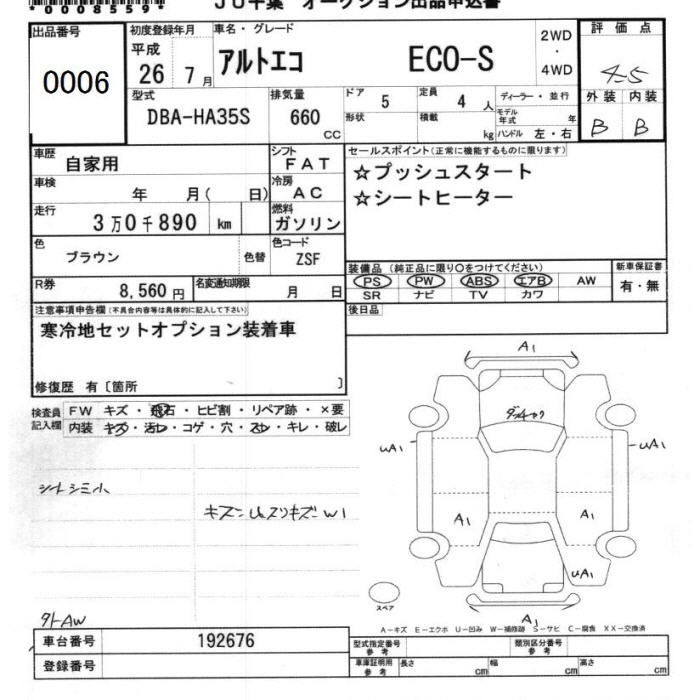 *0008559*
JU千葉 オークション出品申込書
出品番号
0006
初度登録年月
平成 26 年 7 月
車名・グレード
アルトエコ ECO-S
2WD
・
4WD
評価点
4.5
外装 内装
B B
型式
DBA-HA35S
排気量
660
CC
ドア 5
形状
定員 4 人
積載 kg
ディーラー・並行
モデル年式 年
ハンドル 左・右
車歴
自家用
シフト
FAT
車検
年 月( 日)
冷房
AC
走行
3万0千890 km
燃料
ガソリン
色
ブラウン
色替
色コード
ZSF
R券
8,560 円
名変通知期限
月 日
セールスポイント(正常に機能するものに限ります)
☆プッシュスタート
☆シートヒーター
装備品 (純正品に限り○をつけてください)
PS PW ABS エアB AW
SR ナビ TV カワ
新車保証書
有・無
後日品
注意事項申告欄(不具合内容等は具体的に記入して下さい)
寒冷地セットオプション装着車
修復歴 有〔箇所 〕
検査員記入欄
FW キズ・飛石・ヒビ割・リペア跡・×要
内装 キズ・汚レ・コゲ・穴・スレ・キレ・破レ
シートシミ小
W1
外AW
A1
uA1
uA1
A1
A1
uA1
A1
スペア
A-キズ E-エクボ U-凹み W-補修跡 S-サビ C-腐食 XX-交換済
車台番号
192676
登録番号
型式指定番号
参考
類別区分番号
参考
車庫証明用
参考
長さ cm
幅 cm
高さ cm